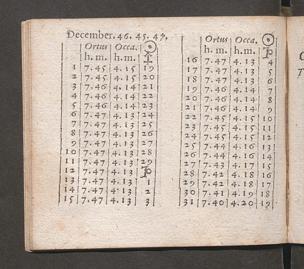 December. 46. 45. 47.
Ortus Occa. ☉
h. m. h. m. ♐
1 7.45 4.15 19
2 7.45 4.15 20
3 7.46 4.14 21
4 7.46 4.14 22
5 7.46 4.14 23
6 7.47 4.13 24
7 7.47 4.13 25
8 7.47 4.13 26
9 7.47 4.13 27
10 7.47 4.13 28
11 7.47 4.13 29
12 7.47 4.13 ♑
13 7.47 4.13 1
14 7.47 4.13 2
15 7.47 4.13 3
Ortus Occa. ☉
h. m. h. m. ♑
16 7.47 4.13 4
17 7.47 4.13 5
18 7.47 4.13 6
19 7.47 4.13 7
20 7.46 4.14 8
21 7.46 4.14 9
22 7.46 4.14
23 7.45 4.15
24 7.45 4.15
25 7.44 4.16
26 7.44 4.16
27 7.43 4.17
28 7.42 4.18
29 7.42 4.18 17
30 7.41 4.19 18
31 7.40 4.20 19